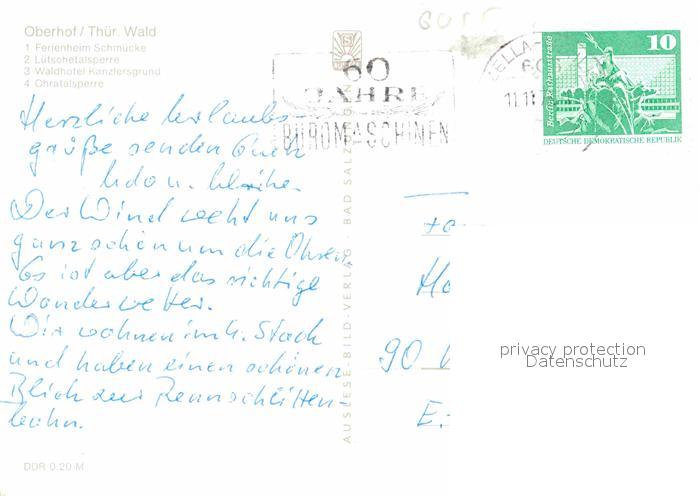 Oberhof / Thür. Wald
1 Ferienheim Schmücke
2 Lütschetalsperre
3 Waldhotel Kanzlersgrund
4 Ohratalsperre
Herzliche Urlaubs-
grüße senden Euch
Udo u.
Der Wind weht uns
ganz schön um die Ohren.
Es ist aber das richtige
Wanderwetter.
Wir wohnen im 4. Stock
und haben einen schönen
Blick zur Rennschlitten-
bahn.
DDR 0.20 M
AUSLESE-BILD-VERLAG · BAD SALZUNGEN
60
JAHRE
BÜROMASCHINEN
ELLA-
60
11.11.
10
Berlin, Rathausstraße
DEUTSCHE DEMOKRATISCHE REPUBLIK
Ha
90
privacy protection
Datenschutz